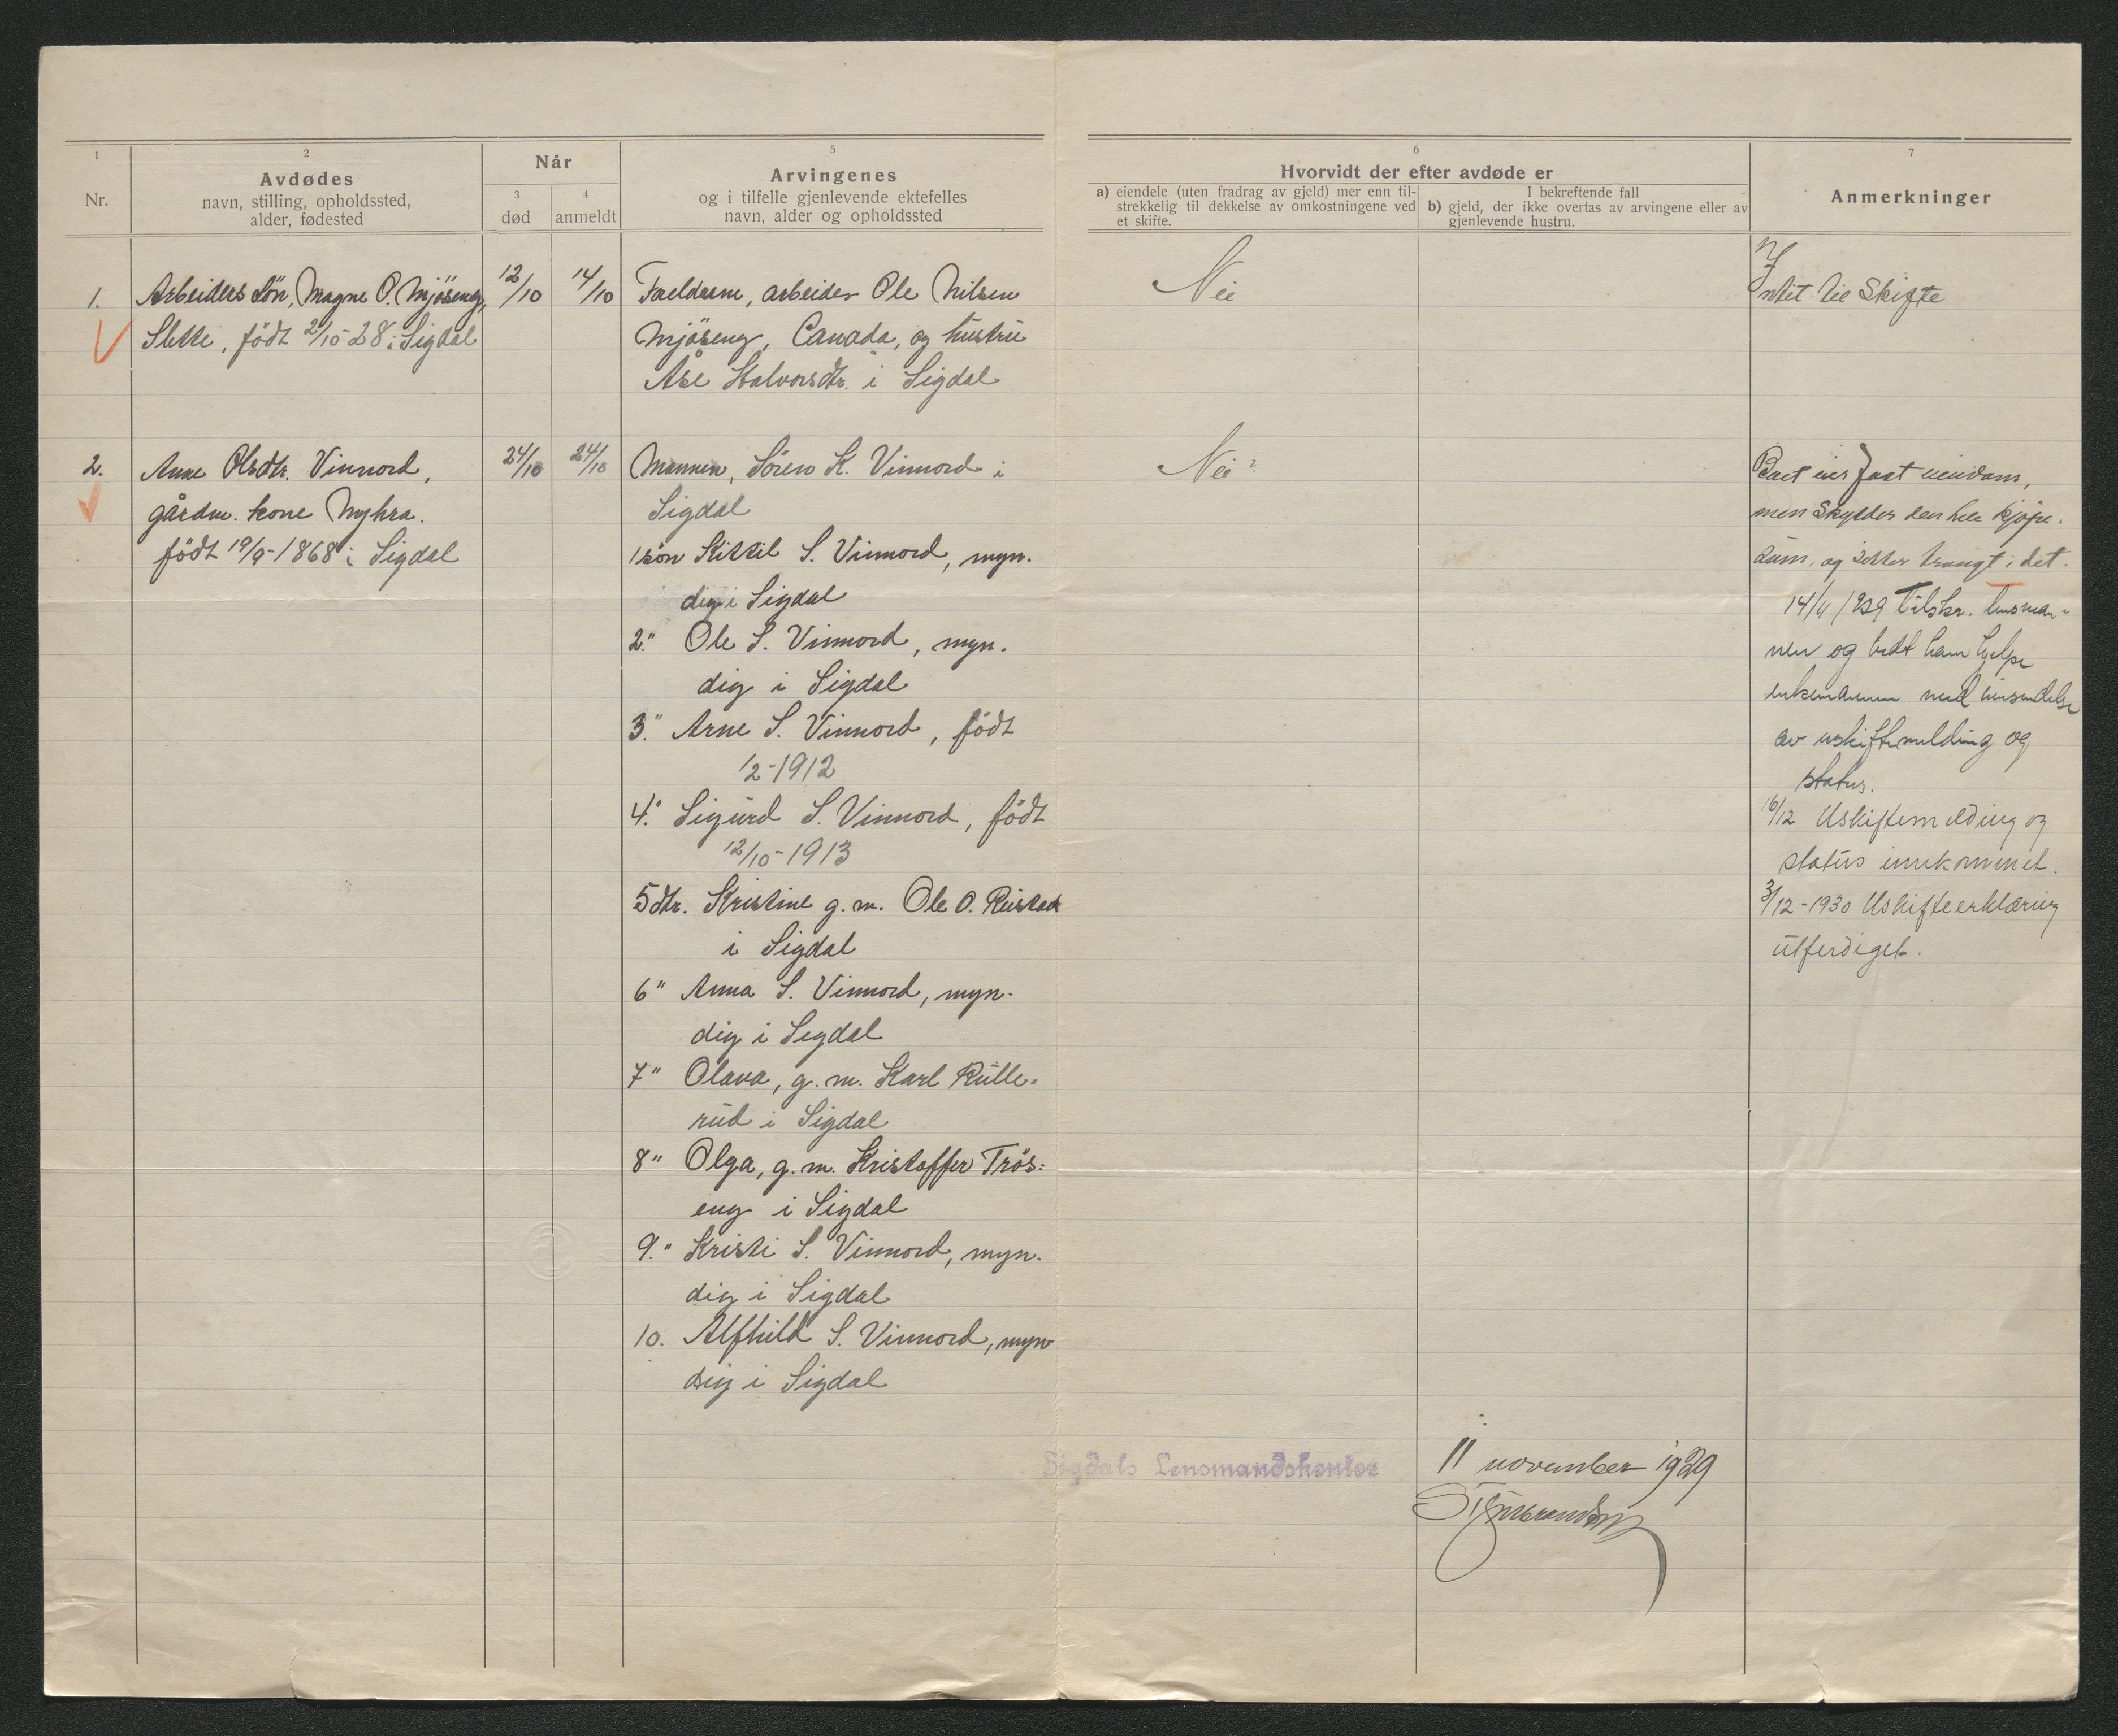 1
Nr.
2
Avdødes
navn, stilling, opholdssted,
alder, fødested
Når
3
død
4
anmeldt
5
Arvingenes
og i tilfelle gjenlevende ektefelles
navn, alder og opholdssted
6
Hvorvidt der efter avdøde er
a) eiendele (uten fradrag av gjeld) mer enn til-
strekkelig til dekkelse av omkostningene ved
et skifte.
I bekreftende fall
b) gjeld, der ikke overtas av arvingene eller av
gjenlevende hustru.
7
Anmerkninger
1.
Arbeiders sön, Magne O. Mjöseng,
Slette, födt 2/10-28 i Sigdal
12/10
14/10
Foreldrene, arbeider Ole Nilsen
Mjöseng, Canada, og hustru
Åse Halvorsdtr. i Sigdal
Nei
Intet til Skifte
2.
Anne Olsdtr. Vinnord,
gårdm. kone Nyhra.
födt 19/9-1868 i Sigdal
24/10
24/10
Mannen, Sören K. Vinnord i
Sigdal
1 sön Kittil S. Vinnord, myn.
dig i Sigdal
2." Ole S. Vinnord, myn.
dig i Sigdal
3." Arne S. Vinnord, födt
1/2-1912
4." Sigurd S. Vinnord, födt
12/10-1913
5 dtr. Kristine g. m. Ole O. Rustad
i Sigdal
6" Anna S. Vinnord, myn-
dig i Sigdal
7" Olava, g. m. Karl Rulle-
rud i Sigdal
8" Olga, g. m. Kristoffer Trös-
eng i Sigdal
9." Kristi S. Vinnord, myn.
dig i Sigdal
10. Alfhild S. Vinnord, myn
dig i Sigdal
Nei?
Boet eier fast eiendom,
men skylder den hele kjøpe-
sum, og sitter trangt i det.
14/11 1929 Tilskr. lensman-
nen og bedt ham hjelpe
enkemannen med innsendelse
av uskiftemelding og
status.
16/12 Uskiftemelding og
status innkommet.
3/12-1930 Uskifteerklæring
utferdiget.
Sigdals Lensmandskontor
11 november 1929